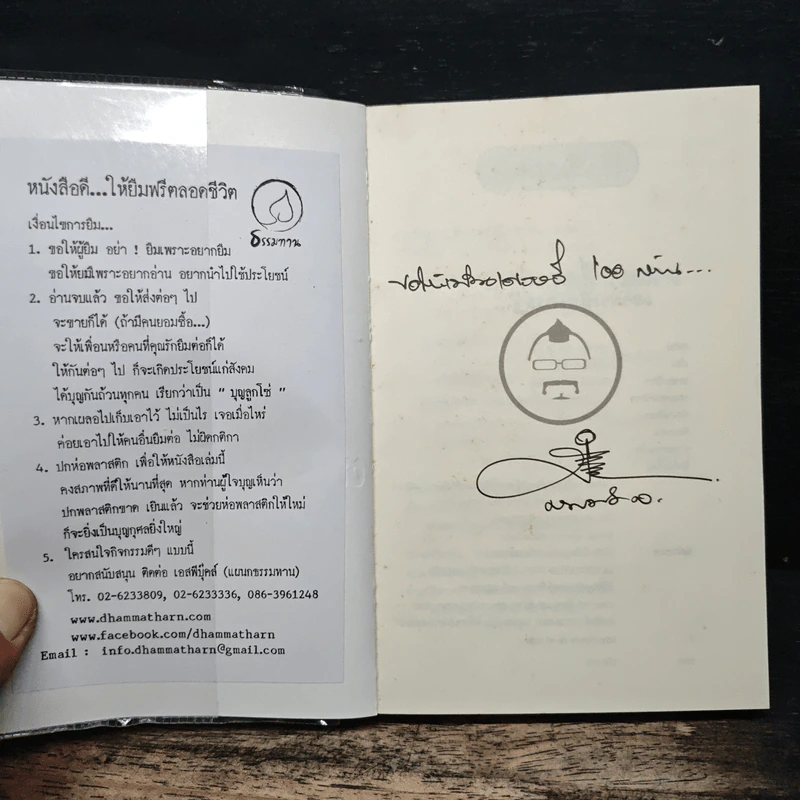 หนังสือดี...ให้ยืมฟรีตลอดชีวิต
ธรรมทาน
เงื่อนไขการยืม...
1. ขอให้ผู้ยืม อย่า ! ยืมเพราะอยากยืม
ขอให้ยืมเพราะอยากอ่าน อยากนำไปใช้ประโยชน์
2. อ่านจบแล้ว ขอให้ส่งต่อๆ ไป
จะขายก็ได้ (ถ้ามีคนยอมซื้อ...)
จะให้เพื่อนหรือคนที่คุณรักยืมต่อก็ได้
ให้กันต่อๆ ไป ก็จะเกิดประโยชน์แก่สังคม
ได้บุญกันถ้วนทุกคน เรียกว่าเป็น " บุญลูกโซ่ "
3. หากเผลอไปเก็บเอาไว้ ไม่เป็นไร เจอเมื่อไหร่
ค่อยเอาไปให้คนอื่นยืมต่อ ไม่ผิดกติกา
4. ปกห่อพลาสติก เพื่อให้หนังสือเล่มนี้
คงสภาพที่ดีให้นานที่สุด หากท่านผู้ใจบุญเห็นว่า
ปกพลาสติกขาด เยินแล้ว จะช่วยห่อพลาสติกให้ใหม่
ก็จะยิ่งเป็นบุญกุศลยิ่งใหญ่
5. ใครสนใจกิจกรรมดีๆ แบบนี้
อยากสนับสนุน ติดต่อ เอสพีบุ๊คส์ (แผนกธรรมทาน)
โทร. 02-6233809, 02-6233336, 086-3961248
www.dhammatharn.com
www.facebook.com/dhammatharn
Email : info.dhammatharn@gmail.com